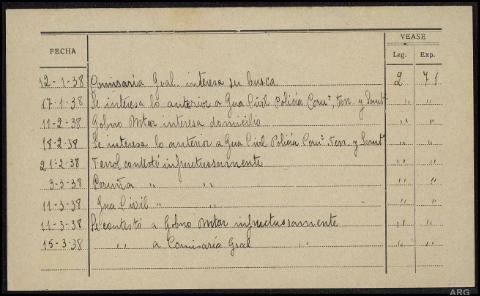 VEASE
FECHA Leg. Exp.
12-1-38 Comisaría Gral. interesa su busca 2 71
17-1-38 Se intersa lo anterior a Gua Civil Policia Coruª, Fer. y Sant°
11-2-38 Gobno Mtar interesa domicilio " "
18-2-38 Se interesa lo anterior a Gua Civil Policia Coruª Fer. y Sant° " "
21-2-38 Ferrol contestó infructuosamente " "
3-3-38 Coruña " " " "
11-3-38 Gua Civil " " " "
11-3-38 Se contestó a Gobno Mtar infructuosamente " "
15-3-38 " a Comisaría Gral " " "
ARG